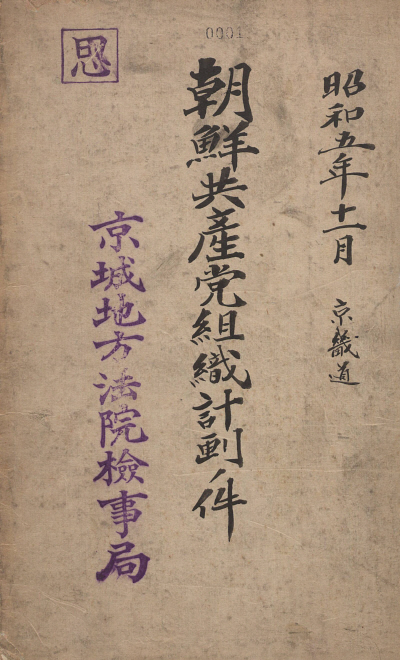 0001
昭和五年十一月 京畿道
朝鮮共産党組織計劃ノ件
思
京城地方法院檢事局